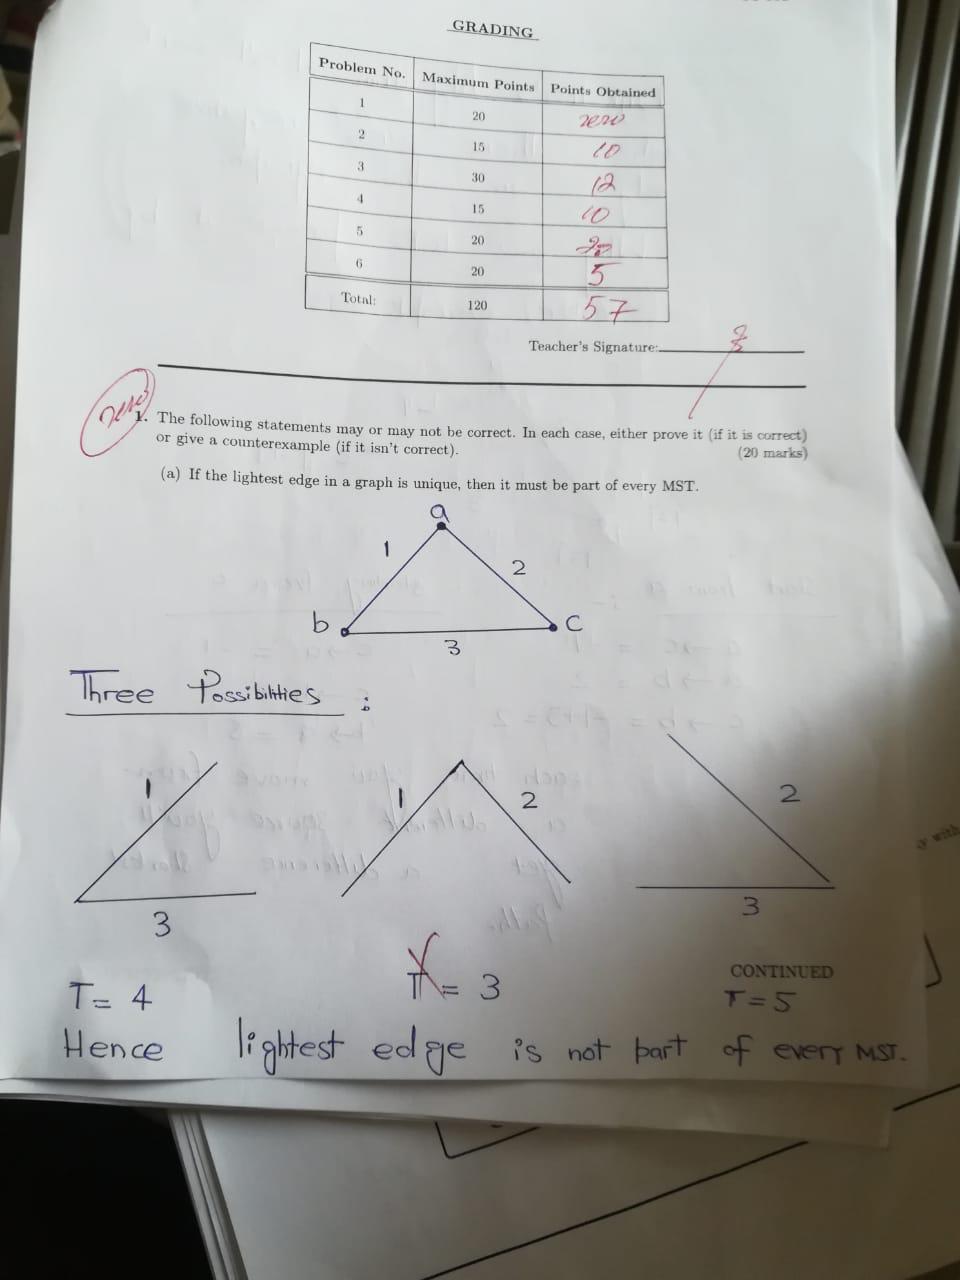 GRADING
Problem No. Maximum Points Points Obtained
1 20 zero
2 15 10
3 30 12
4 15 10
5 20 20
6 20 5
Total: 120 57
Teacher's Signature:
zero
1. The following statements may or may not be correct. In each case, either prove it (if it is correct)
or give a counterexample (if it isn't correct). (20 marks)
(a) If the lightest edge in a graph is unique, then it must be part of every MST.
a
1 2
b c
3
Three Possibilities :
1 1 2 2
3 3
CONTINUED
T= 4 T= 3 T=5
Hence lightest edge is not part of every MST.